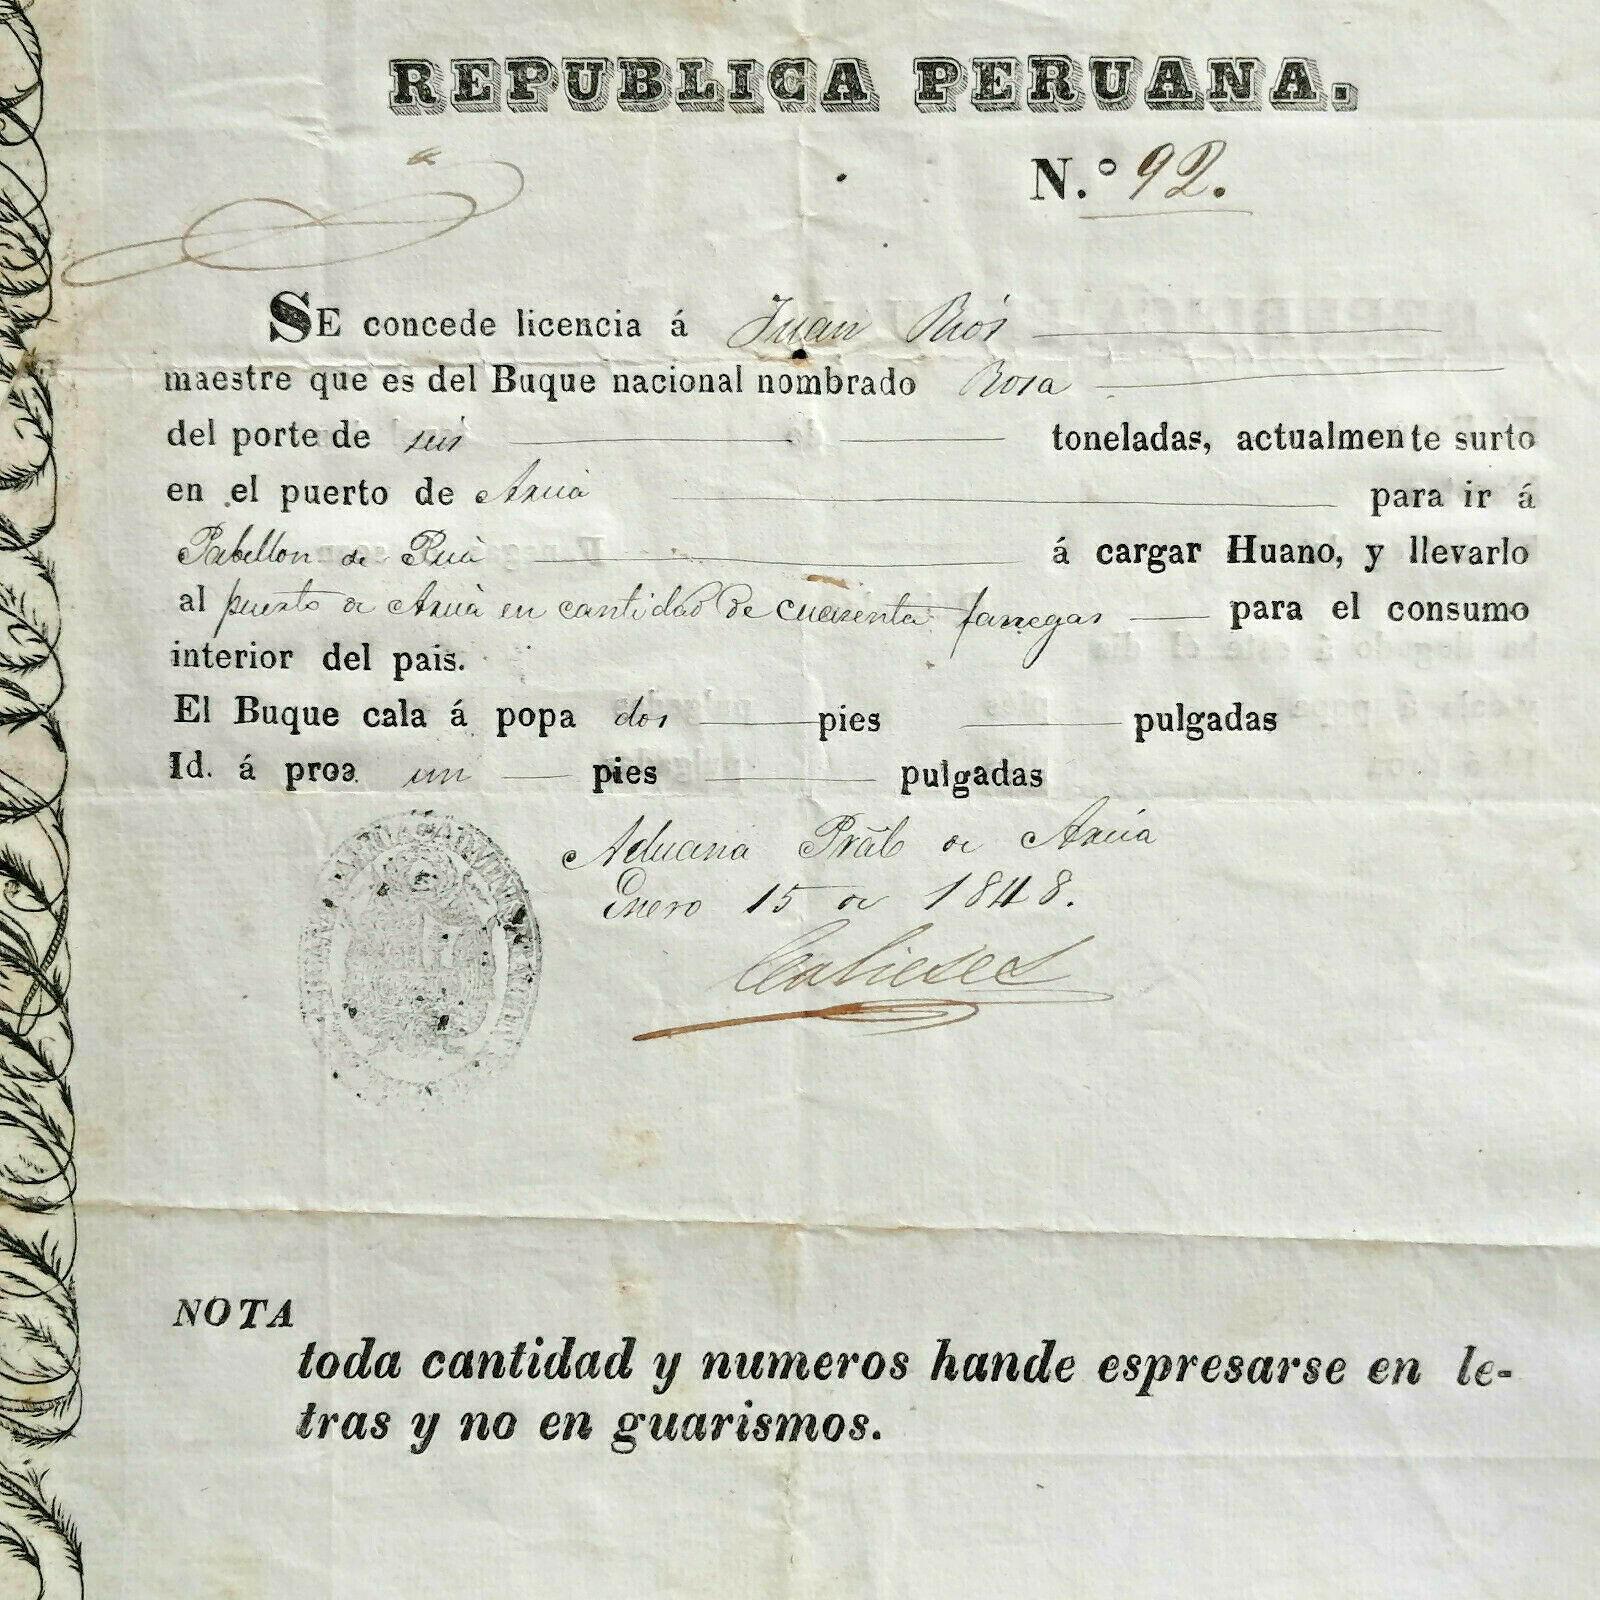 REPUBLICA PERUANA.
N.º 92.
SE concede licencia á Juan Rios
maestre que es del Buque nacional nombrado Rosa
del porte de seis toneladas, actualmente surto
en el puerto de Arica para ir á
Pabellon de Pica á cargar Huano, y llevarlo
al puerto de Arica en cantidad de cuarenta fanegas para el consumo
interior del pais.
El Buque cala á popa dos pies pulgadas
Id. á proa un pies pulgadas
Aduana Pral de Arica
Enero 15 de 1848.
NOTA
toda cantidad y numeros hande espresarse en le-
tras y no en guarismos.